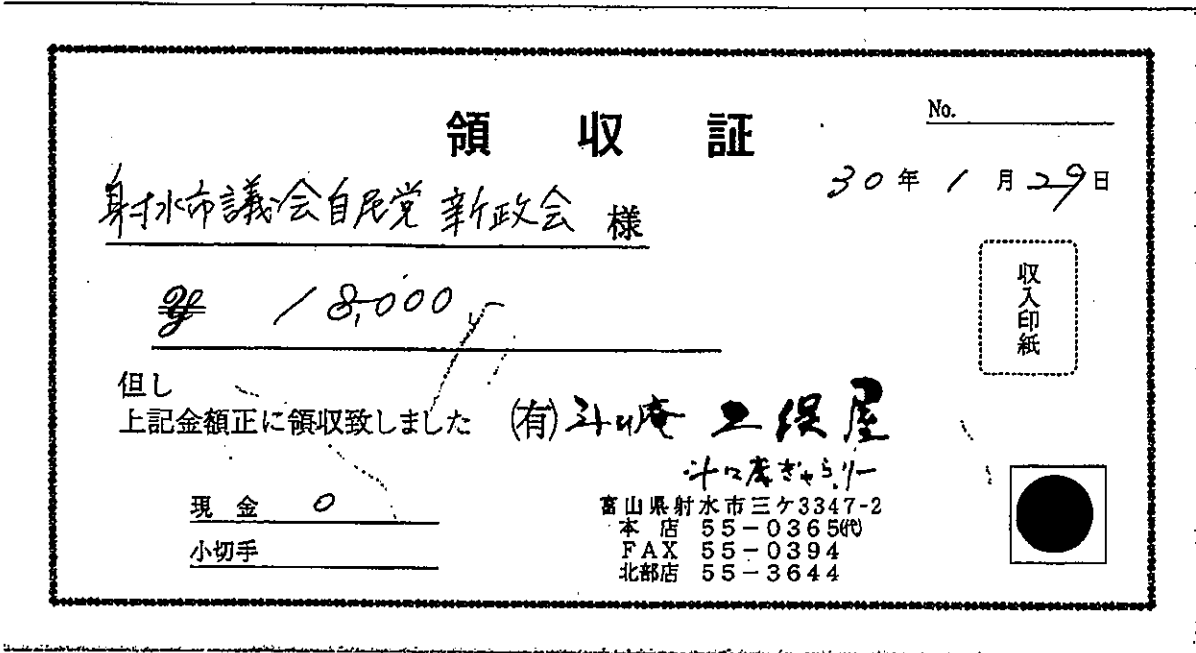 領 収 証
No.
30年1月29日
射水市議会自民党 新政会 様
¥ 18,000
収入印紙
但し
上記金額正に領収致しました
(有)
現金 0
小切手
富山県射水市三ケ3347-2
本店 55-0365㈹
FAX 55-0394
北部店 55-3644